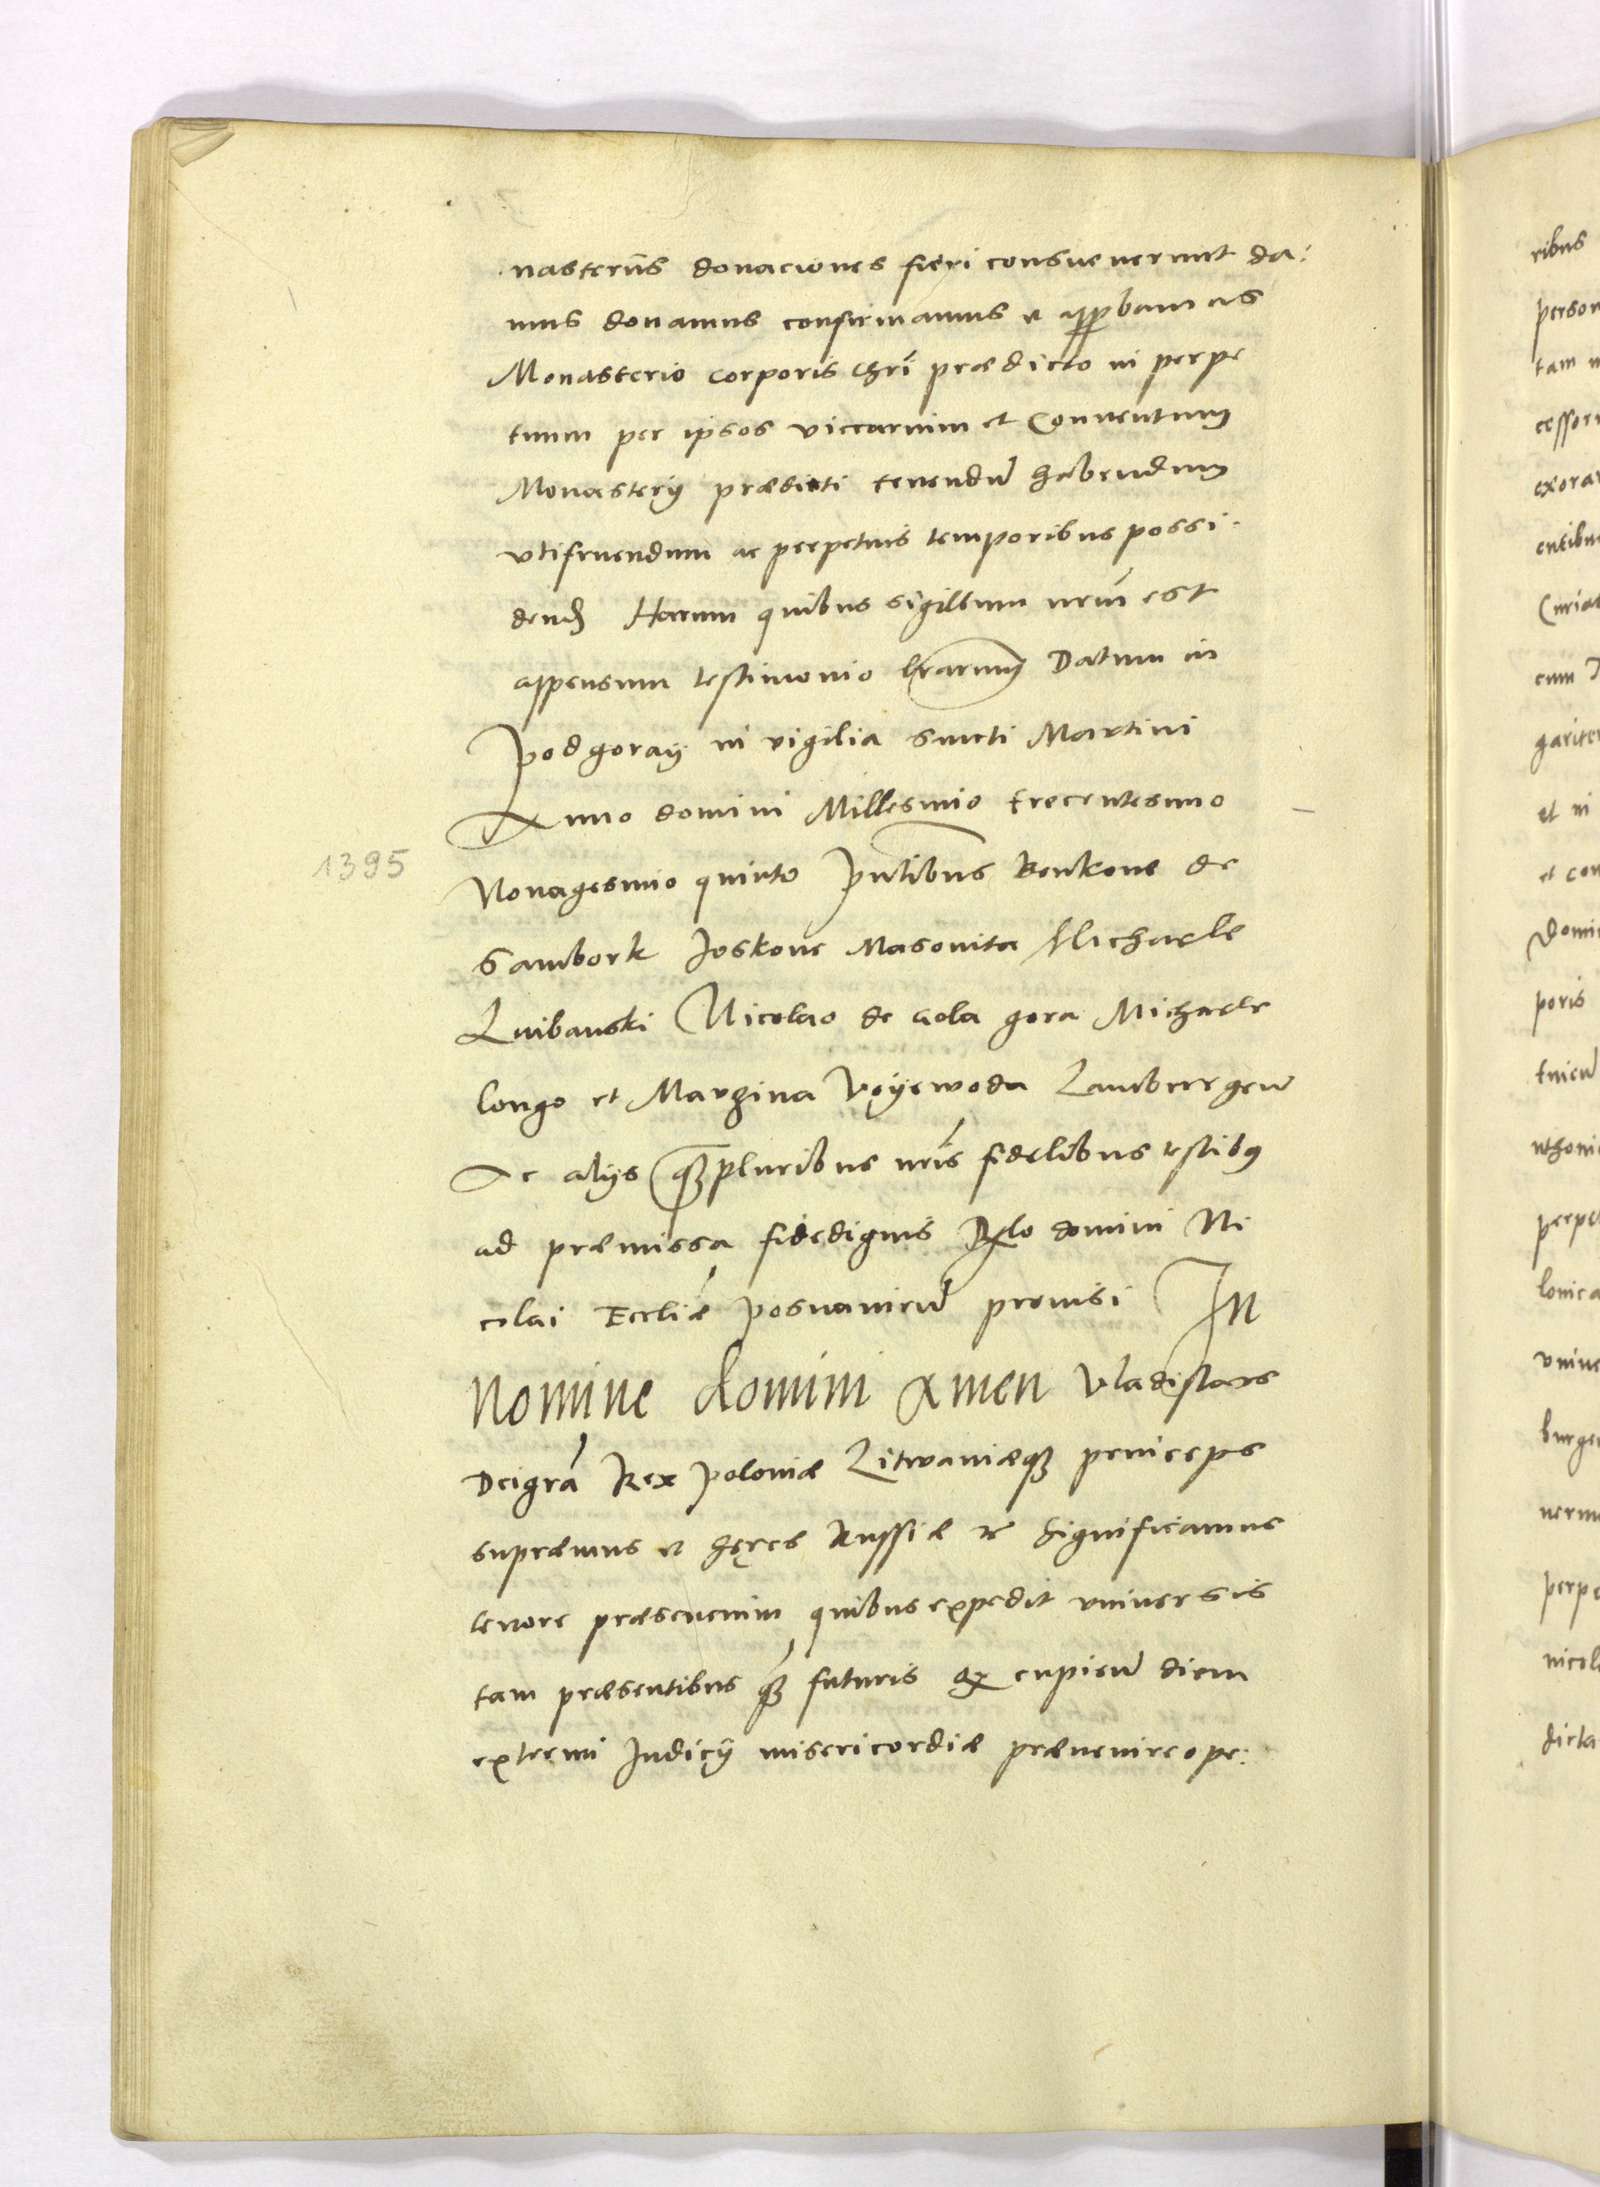 nasteriis donaciones fieri consueuerunt da:
mus donamus confirmamus et approbamus
Monasterio corporis Chrī prædicto in perpe
tuum per ipsos viccarium et Conuentum
Monasterÿ prædicti tenendū habendum
vtifruendum ac perpetuis temporibus possi-
dend Harum quibus sigillum nrūm est
appensum testimonio lrarum Datum in
Podgoraÿ in vigilia Sancti Martini
Anno domini Millesimo trecentesimo
1395
Nonagesimo quinto Pntibus Benkone de
Sambork Joskone Masouita Michaele
Luibanski Nicolao de Gola gora Michaele
longo et Margina Voÿewoda Lamburgeū
Ac alÿs quampluribus nrīs fidelibus testibus
ad præmissa fidedignis Dato domini Ni
colai Eccliæ Posnanieū prouisi In
nomine domini Amen Vladislaus
Dei grā Rex Poloniæ Litwaniæq princeps
supræmus et hęres Russiæ etc Significamus
tenore præsencium quibus expedit vniuersis
tam præsentibus quam futuris cupieū diem
extremi Judicÿ misericordiæ præuenire ope:
ribus
person
tam
cessor
exora
entibu
Curia
cum
garite
et in
et con
Domi
poris
tuieū
nthoni
perpe
lonica
vniue
burge
nerun
perpe
nicol
dicta